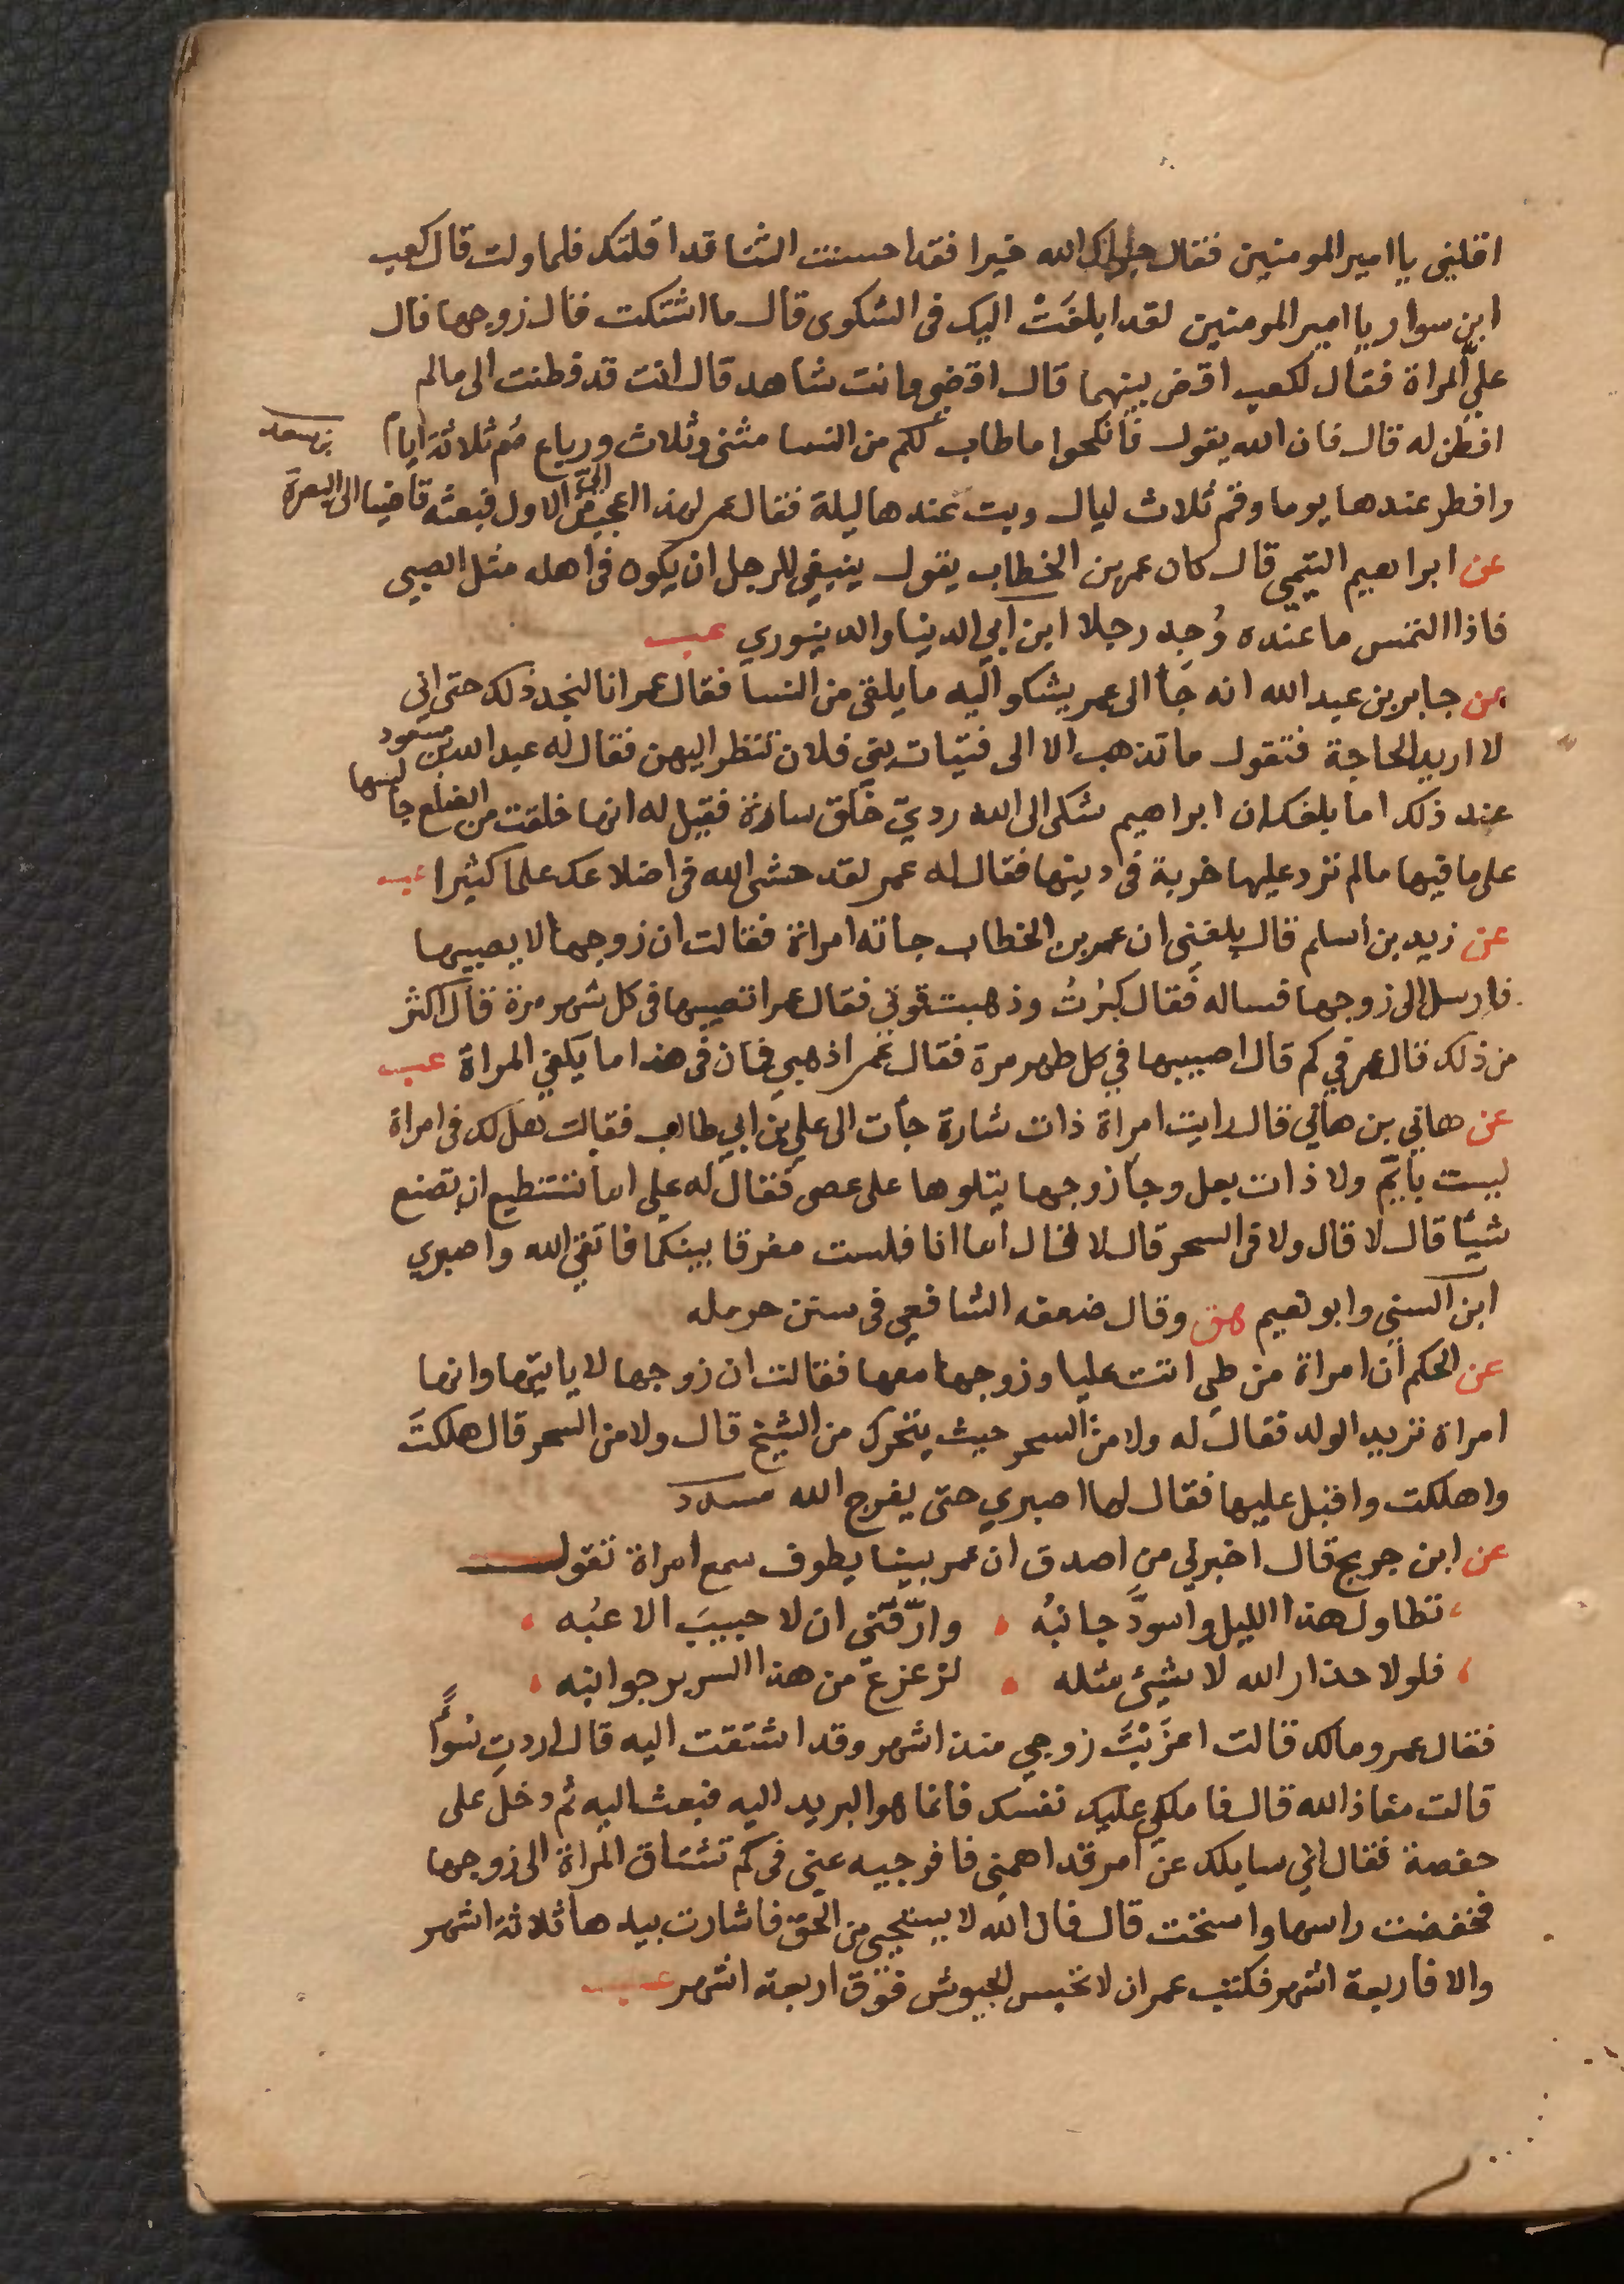 اقلني يا امير المومنين فقال جزاك الله خيرا فقد احسنت الثنا قد اقلتك فلما ولت قال كعب
ابن سوار يا امير المومنين لقد ابلغَتْ اليك في الشكوى قال ما اشتكت قال زوجها قال
عليَّ المراة فقال لكعب اقض بينهما قال اقضي وانت شاهد قال انت قد فطنت الى مالم
افطن له قال فان الله يقول فانكحوا ما طاب لكم من النسا مثنى وثلاث ورباع صُم ثلاثة ايام
وافطر عندها يوما وقم ثلاث ليال وبت عندها ليلة فقال عمر لهذا اعجب اليَّ من الاول فبعثه قاضيا الى البصرة
ابن سعد
عن ابراهيم التيمي قال كان عمر بن الخطاب يقول ينبغي للرجل ان يكون في اهله مثل الصبي
فاذا التمس ما عنده وُجِد رجلا ابن ابي الدنيا والدينوري عب
عن جابر بن عبد الله انه جأ الى عمر يشكو اليه ما يلقى من النسا فقال عمر انا لنجد ذلك حتى اني
لا اريد الحاجة فتقول ما تذهب الا الى فتيات بني فلان تنظر اليهن فقال له عبد الله بن مسعود
عند ذلك اما بلغك ان ابراهيم شكى الى الله رديّ خلق سارة فقيل له انها خلقت من الضلع فالبسها
على ما فيها مالم تر عليها خربة في دينها فقال له عمر لقد حشى الله في اضلاعك علما كثيرا عب
عن زيد بن اسلم قال بلغني ان عمر بن الخطاب جاته امراة فقالت ان زوجها لا يصيبها
فارسل الى زوجها فساله فقال كبُرتُ وذهبت قوتي فقال عمر اتصيبها في كل شهر مرة قال اكثر
من ذلك قال عمر في كم قال اصيبها في كل طهر مرة فقال عمر اذهبي فان في هذا ما يكفي المراة عب
عن هاني بن هاني قال رايت امراة ذات شارة جأت الى علي بن ابي طالب فقالت هل لك في امراة
ليست بأيّم ولا ذات بعل وجأ زوجها يتلوها على عصى فقال له علي اما تستطيع ان تصنع
شيئا قال لا قال ولا في السحر قال لا فقال اما انا فلست مفرقا بينكما فاتقي الله واصبري
ابن السني وابو نعيم هق وقال ضعفه الشافعي في سنن حرمله
عن الحكم ان امراة من طي اتت عليا وزوجها معها فقالت ان زوجها لا ياتيها وانها
امراة تريد الولد فقال له ولا من السحر حيث يتحرك من الشيخ قال ولا من السحر قال هلكتَ
واهلكت واقبل عليها فقال لها اصبري حتى يفرج الله مسدد
عن ابن جريج قال اخبرني من اصدق ان عمر بينا يطوف سمع امراة تقول
تطاول هذا الليل واسودَّ جانبُه وارّقني ان لا حبيبَ الاعبُه
فلولا حذار الله لا شيئ مثله لزعزع من هذا السرير جوانبه
فقال عمر ومالك قالت اغزَيْتَ زوجي منذ اشهر وقد اشتقت اليه قال اردتِ سُوأً
قالت معاذ الله قال فاملكي عليك نفسك فانما هو البريد اليه فبعث اليه ثم دخل على
حفصة فقال اني سايلك عن امر قد اهمني فافرجيه عني في كم تشتاق المراة الى زوجها
فخفضت راسها واستحت قال فان الله لا يستحيي من الحق فاشارت بيدها ثلاثة اشهر
والا فاربعة اشهر فكتب عمر ان لا تحبس الجيوش فوق اربعة اشهر عب